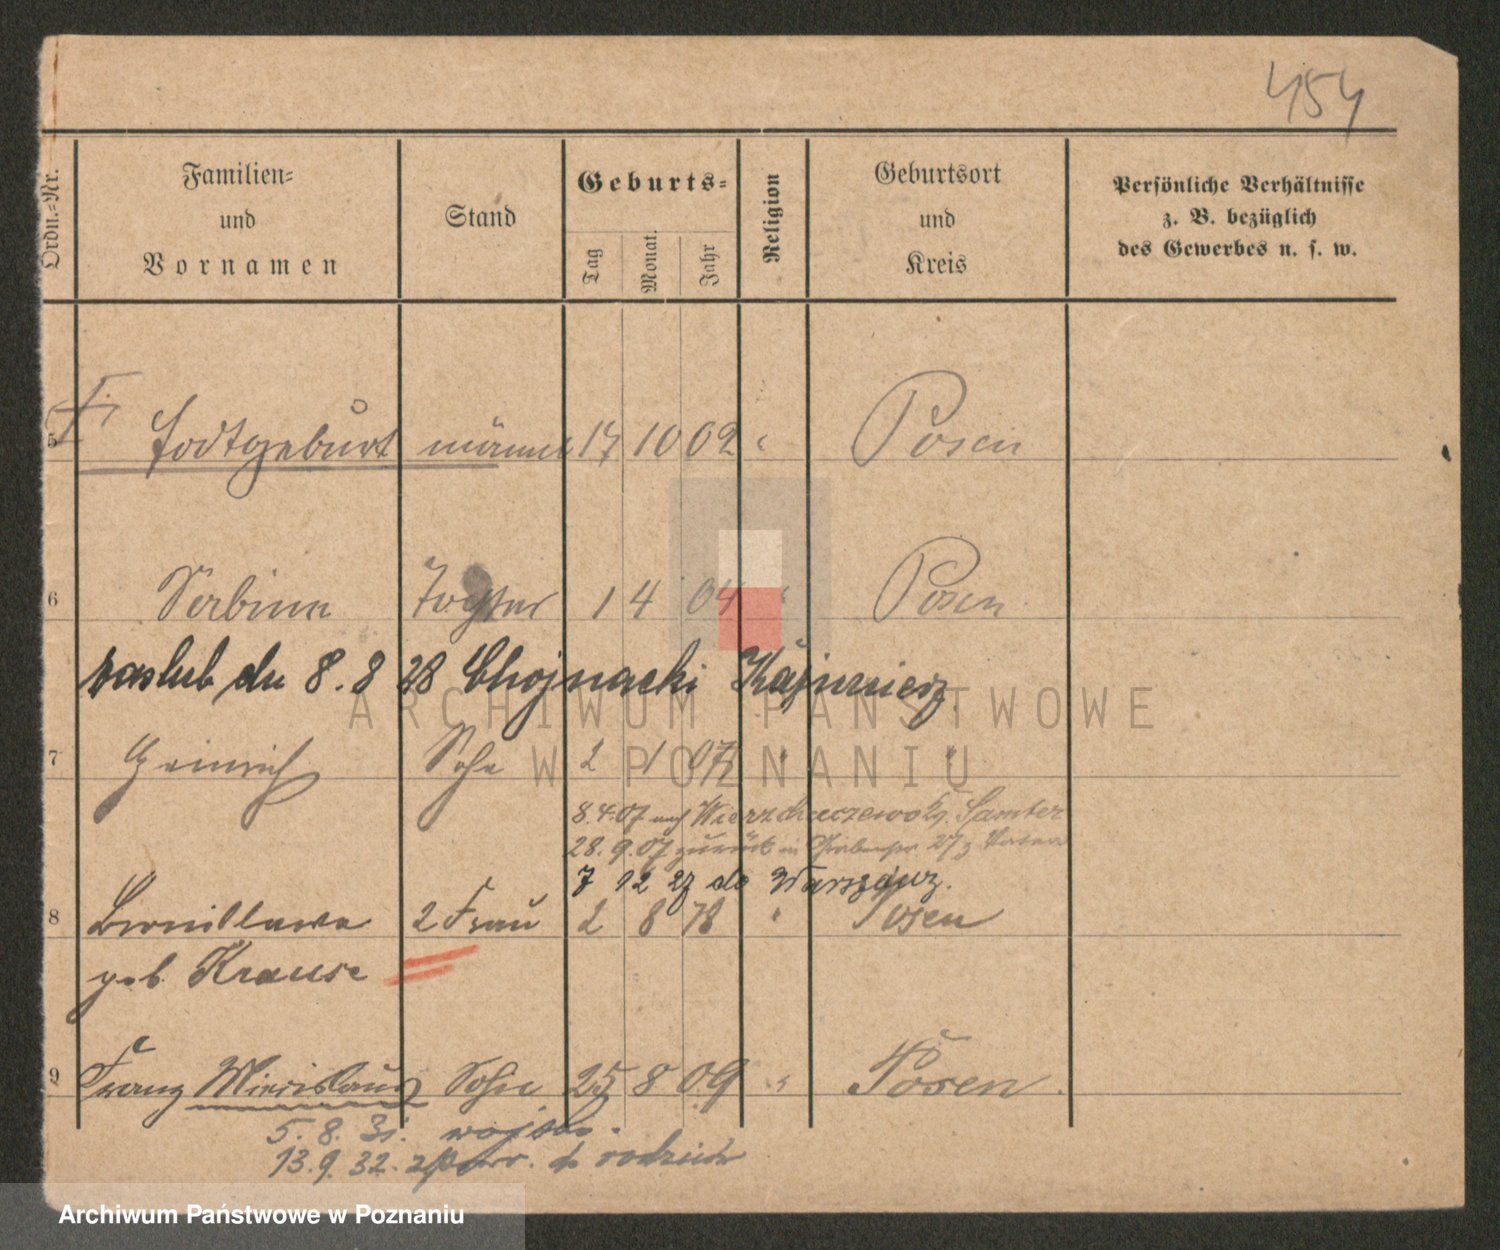 454
Ordn.-Nr.
Familien-
und
Vornamen
Stand
Geburts-
Tag
Monat.
Jahr
Religion
Geburtsort
und
Kreis
Persönliche Verhältnisse
z. B. bezüglich
des Gewerbes u. s. w.
5 Todtgeburt männl 17 10 02 " Posen
6 Sabina Tochter 1 4 04 " Posen
zaslub dn 8.8 28 Chojnacki Kazimierz
7 Heinrich Sohn 2 1 07 " "
8.4.07 nach Samter
28.9.07 zurück in
7 12 27 do Warszawy.
8 2 Frau 2 8 78 " Posen
geb. Krause
9 Franz Mieczislaus Sohn 25 8 09 " Posen
5.8.31. wojsko.
13.9.32. z powr. do rodziców
ARCHIWUM PAŃSTWOWE
W POZNANIU
Archiwum Państwowe w Poznaniu